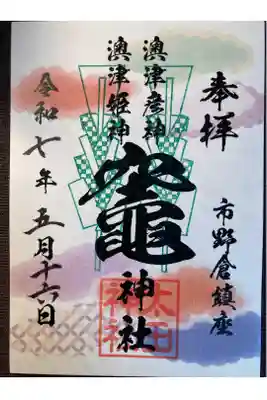 奉拝
市野倉鎮座
澳津彦神
澳津姫神
竈神社
令和七年五月十六日
太田神社